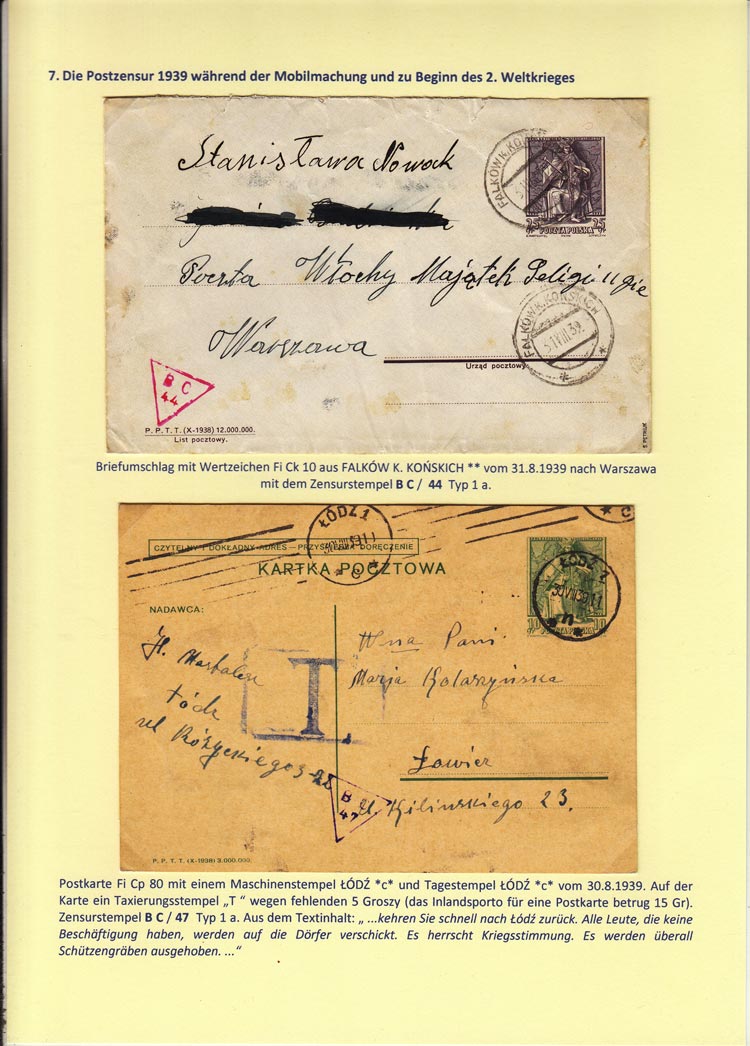 7. Die Postzensur 1939 während der Mobilmachung und zu Beginn des 2. Weltkrieges
Stanisława Nowak
FALKÓW K. KOŃ
25 25
POCZTA POLSKA
Poczta Włochy Majątek
Warszawa
FALKÓW K. KOŃSKICH
31 VIII 39
Urząd pocztowy
B C
44
P. P. T. T. (X-1938) 12.000.000.
List pocztowy.
Briefumschlag mit Wertzeichen Fi Ck 10 aus FALKÓW K. KOŃSKICH ** vom 31.8.1939 nach Warszawa
mit dem Zensurstempel B C / 44 Typ 1 a.
ŁÓDŹ 1
30 VIII 39 11
* c *
CZYTELNY I DOKŁADNY ADRES — PRZYSPIESZA DORĘCZENIE
KARTKA POCZTOWA
ŁÓDŹ 1
30 VIII 39 11
10 10
NADAWCA:
Wna Pani
Marja Kolaszyńska
Łódź
T
Łowicz
B
47
ul. Kilińskiego 23.
P. P. T. T. (X-1938) 3.000.000.
Postkarte Fi Cp 80 mit einem Maschinenstempel ŁÓDŹ *c* und Tagestempel ŁÓDŹ *c* vom 30.8.1939. Auf der
Karte ein Taxierungsstempel „T “ wegen fehlenden 5 Groszy (das Inlandsporto für eine Postkarte betrug 15 Gr).
Zensurstempel B C / 47 Typ 1 a. Aus dem Textinhalt: „ ...kehren Sie schnell nach Łódź zurück. Alle Leute, die keine
Beschäftigung haben, werden auf die Dörfer verschickt. Es herrscht Kriegsstimmung. Es werden überall
Schützengräben ausgehoben. ...“